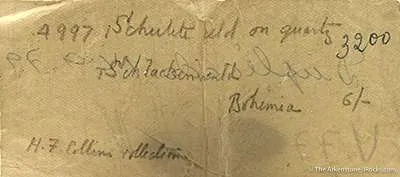 4997 Scheelite xld on quartz 3200
Schlackenwald
Bohemia 6/-
H. F. Collins collection
© The Arkenstone, iRocks.com